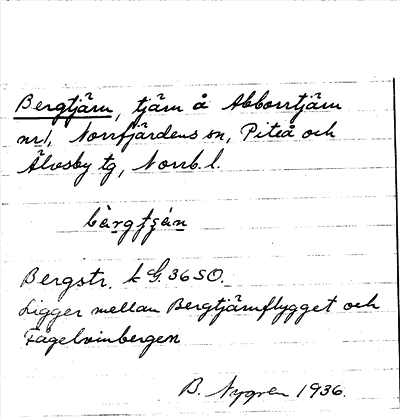 Bergtjärn, tjärn å Abborrtjärn
nr1, Norrfjärdens sn, Piteå och
Älvsby tg, Norrb. l.
bàrgtjä̀n
Bergstr. k G. 36 SO.
Ligger mellan Bergtjärnflygget och
Fågelvinbergen
B. Nygren 1936.